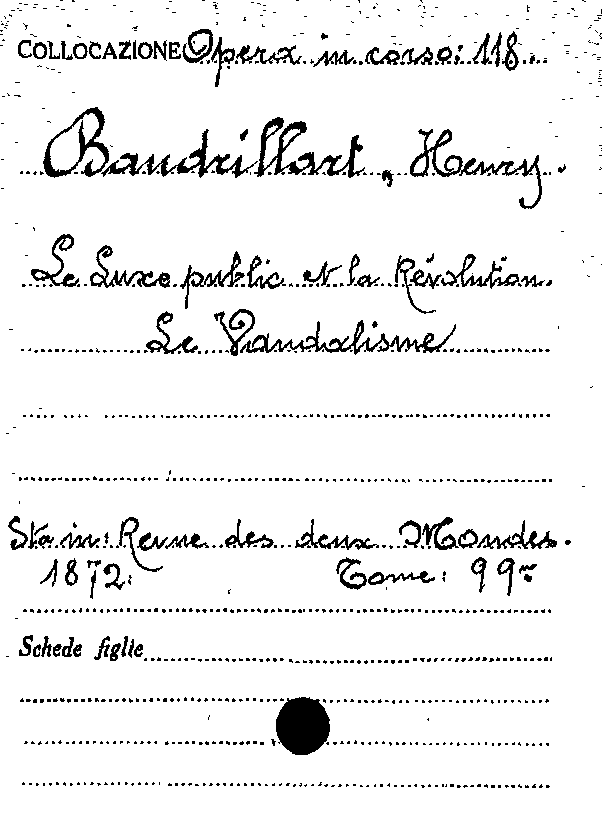 COLLOCAZIONE Opera in corso: 118
Baudrillart, Henry.
Le Luxe public et la Révolution.
Le Vandalisme
Sta in: Revue des deux Mondes.
1872. Tome: 99º
Schede figlie